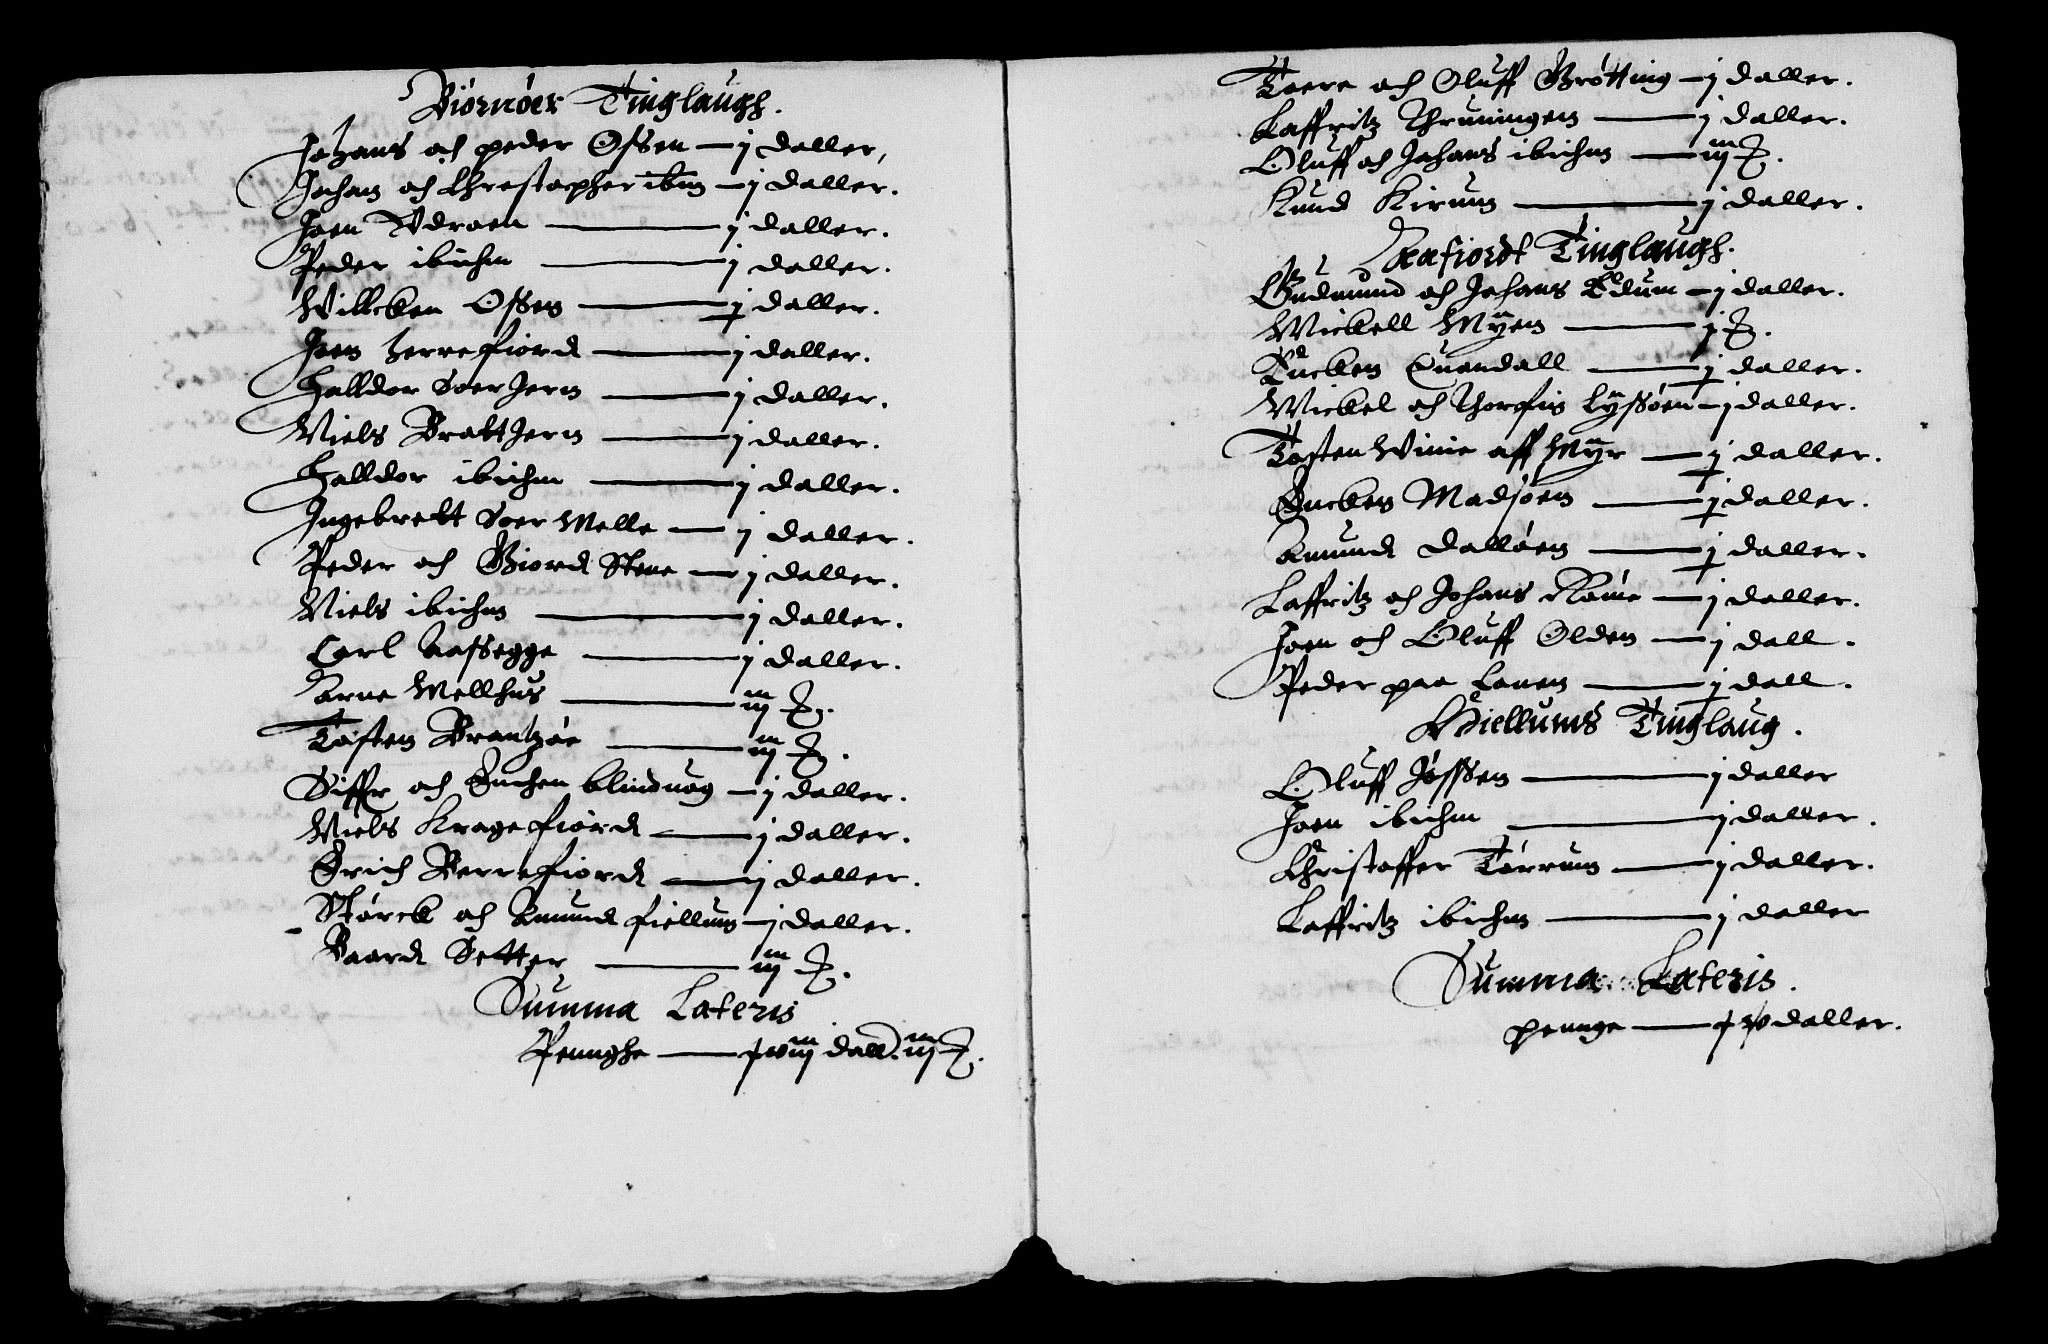 Biørnøer Tinglaugh.
Johans och peder Ossen — j daller,
Johan och Chrestopher ibm — j daller.
Joen Udroen — j daller.
Peder ibidem — j daller.
Willcken Ossen — j daller.
Joen herrefiord — j daller.
Halldor Soer Jern — j daller.
Niels Bratt Jern — j daller.
Halldor ibidem — j daller.
Ingebrett Soer Melle — j daller.
Peder och Biord Stene — j daller.
Niels ibidem — j daller.
Carl Aassegge — j daller.
Arne Mellhus — iij
Tosten Brantzøe — iij
Siffr och Enchen blinduog — j daller.
Niels Kragefiord — j daller.
Erich Berrefiord — j daller.
Størck och Amund fiellum — j daller.
Baard Setter — iij
Summa Lateris
Pennghe — dall. iij
Toere och Oluff Brøtting — j daller.
Laffritz Thruningen — j daller.
Oluff och Johans ibidem — iij
Knud Kirung — j daller.
Aafiordt Tinglaugh.
Gudmund och Johans Edum — j daller.
Mickell Myen — j
Encken Quandall — j daller.
Mickel och Thorfin Lyssøen — j daller.
Tosten Winie aff Myr — j daller.
Encken Madsøen — j daller.
Amund Dalløen — j daller.
Laffritz och Johans Rømme — j daller.
Joen och Oluff Olden — j dall.
Peder paa Lanen — j dall.
Miellums Tinglaug.
Oluff Jøssen — j daller
Joen ibidem — j daller.
Christoffer Tørrum — j daller.
Laffritz ibidem — j daller
Summa Lateris.
pennge — daller.